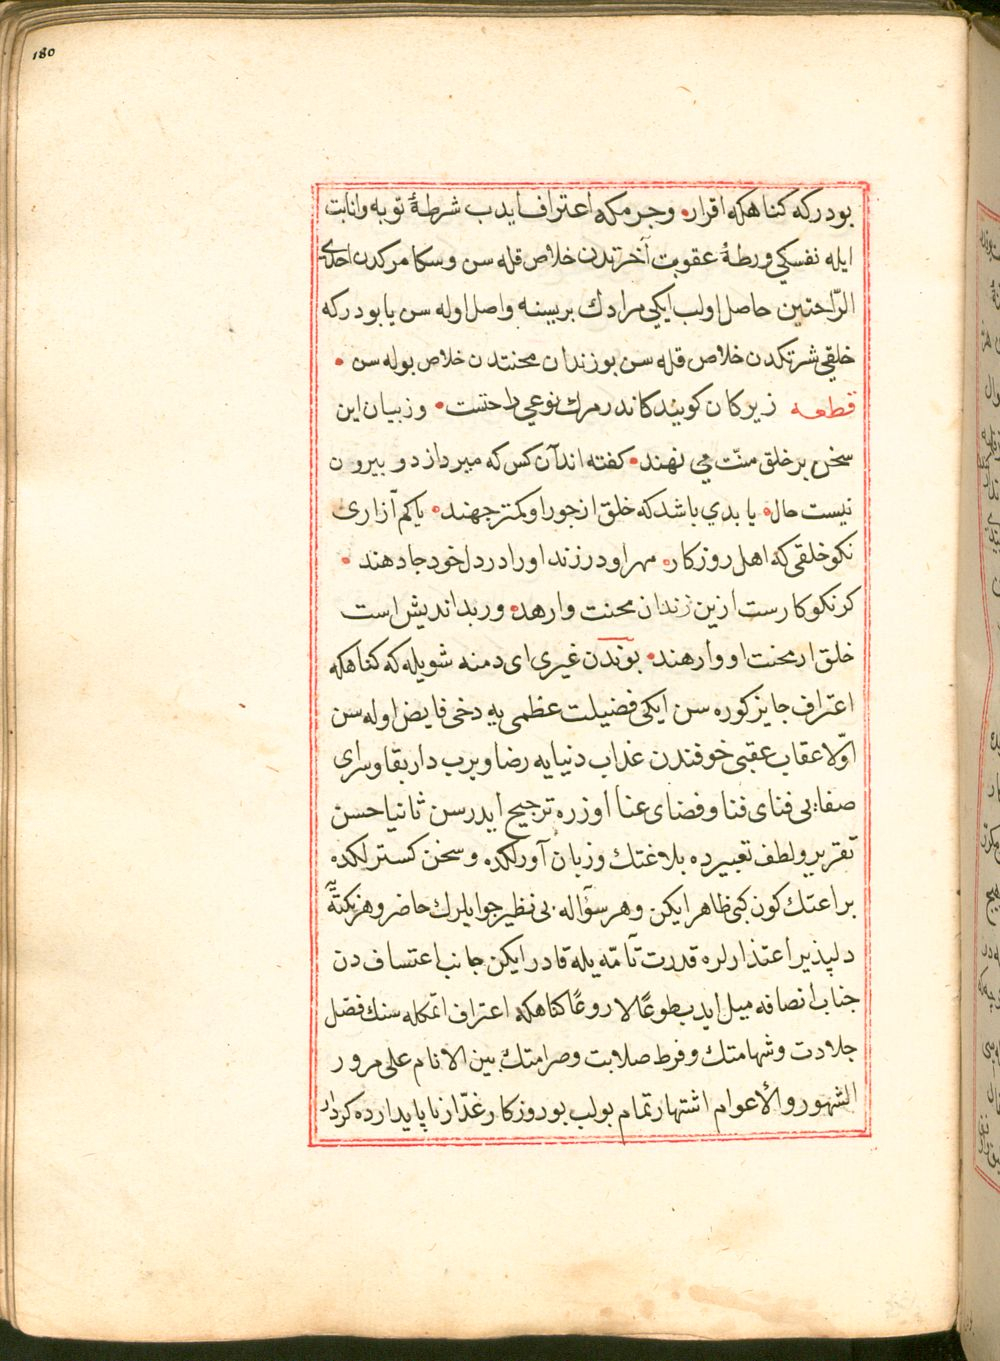 180
بودركه كناهكه اقرار• وجرمكه اعتراف ايدب شرطهٔ توبه وانابت
ايله نفسكي ورطهٔ عقوبت آخرتدن خلاص قله سن وسكا مركدن احدى
الرّاحتين حاصل اولب ايكي مرادك بريسنه واصل اوله سن يا بودركه
خلقي شرتكدن خلاص قله سن بو زندان محنتدن خلاص بوله سن •
قطعه زيركان كويند كاندر مرك نوعي راحتست• وز بيان اين
سخن بر خلق منّت مي نهند• كفته اند آن كس كه ميرد از دو بيرون
نيست حال• يا بدي باشد كه خلق از جور او كمتر جهند• يا كم آزارى
نكو خلقى كه اهل روزكار• مهر او درزند او را در دل خود جا دهند •
كر نكوكارست ازين زندان محنت وارهد• ور بد انديش است
خلق از محنت او وارهند• بوندن غيرى اى دمنه شويله كه كناهكه
اعتراف جايز كوره سن ايكى فضيلت عظمى يه دخى فايض اوله سن
اوّلا عقاب عقبى خوفندن عذاب دنيايه رضا ويرب دار بقا وسراى
صفايى فناى فنا وفضاى عنا اوزره ترجيح ايدرسن ثانيا حسن
تقرير ولطف تعبيرده بلاغتك وزبان آورلكده وسخن كسترلكده
براعتك كون كبى ظاهر ايكن وهر سؤاله بى نظير جوابلرك حاضر وهر نكتهٔ
دلپذير اعتذارلره قدرت تامّه يله قادر ايكن جانب اعتسافدن
جناب انصافه ميل ايدب طوعًا لا روعًا كناهكه اعتراف اتمكله سنك فضل
جلادت وشهامتك وفرط صلابت وصرامتك بين الانام على مرور
الشهور والأعوام اشتهار تمام بولب بو روزكار غدّار ناپايدارده كردار